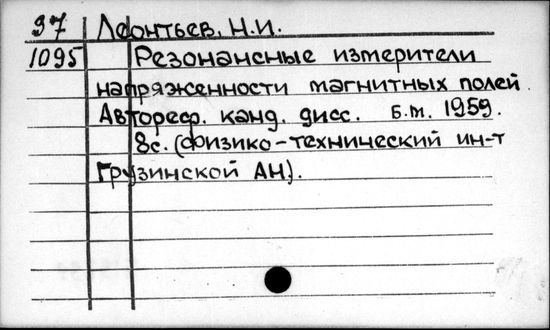 97 Леонтьев, Н.И.
1095 Резонансные измерители
напряженности магнитных полей.
Автореф. канд. дисс. Б.м. 1959.
8с. (физико-технический ин-т
Грузинской АН).